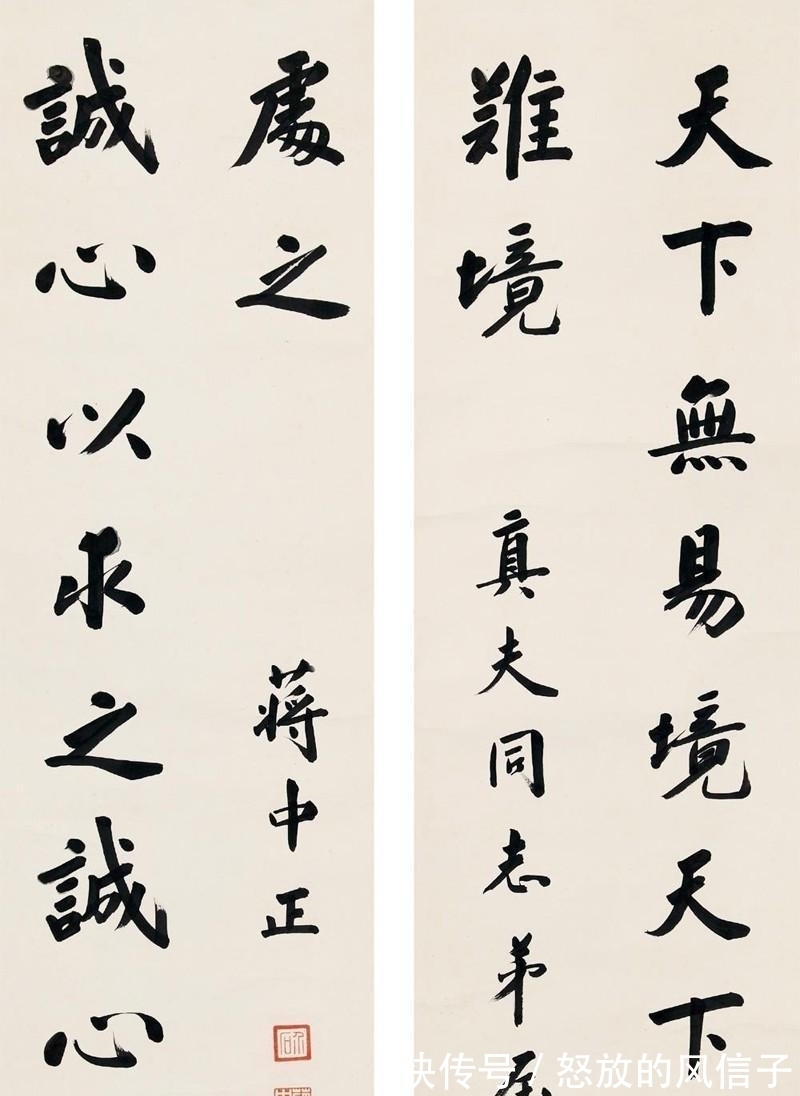 天下無易境天下
難境
真夫同志弟
誠心以求之誠心
處之
蔣中正
介石
快传号 / 怒放的风信子